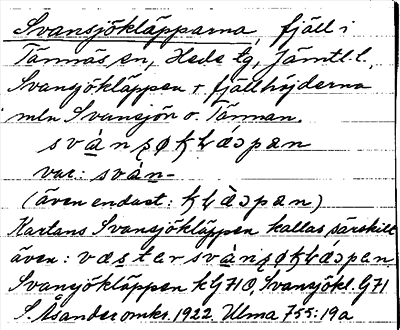 Svansjökläpparna, fjäll i
Tännäs sn, Hede tg, Jämtl. l.,
Svansjökläppen + fjällhöjderna
mln Svansjön o. Tännan.
var: svàn-
(även endast:
Kartans Svansjökläppen kallas särskilt
även:
Svansjökläppen kG71O, Svansjökl. G71
S. Ålander omkr. 1922. Ulma 755:19a